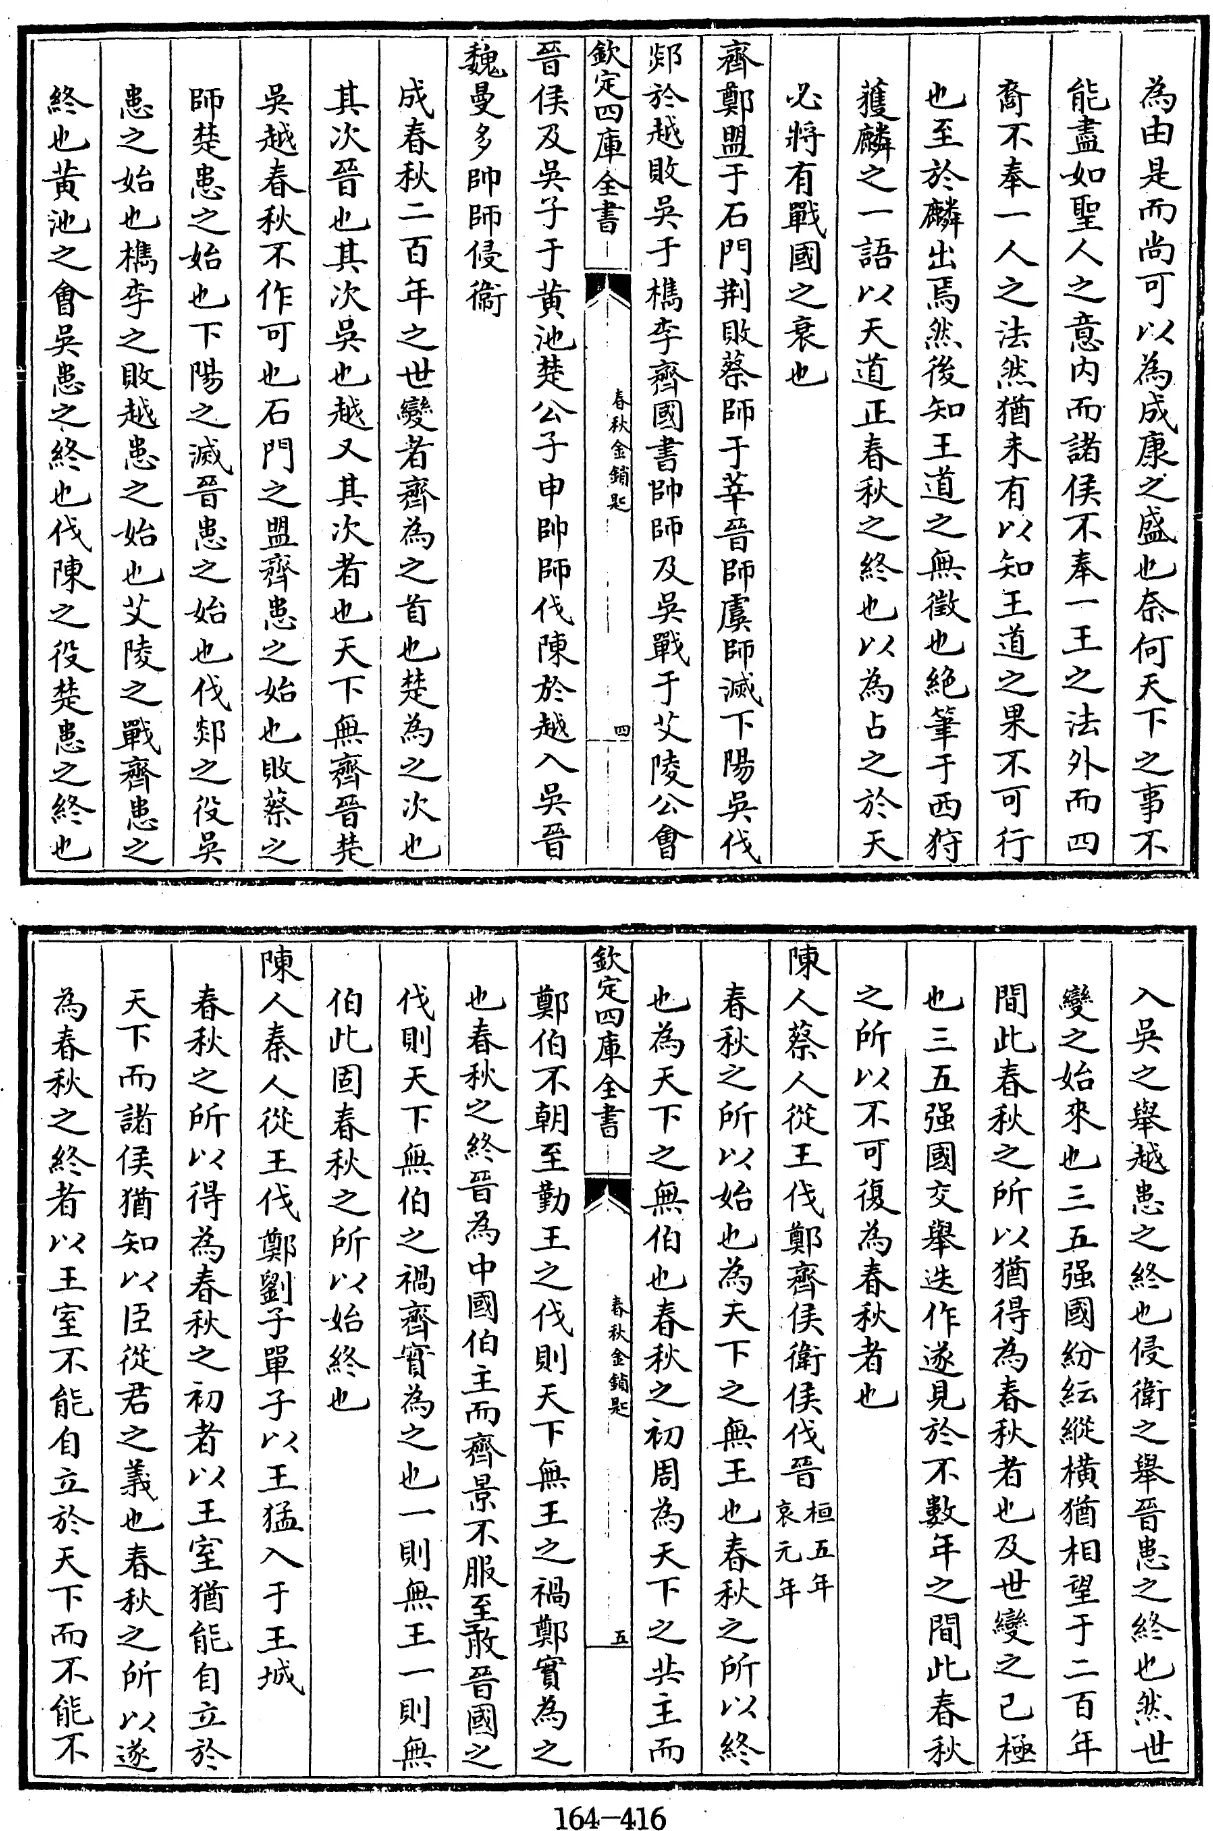 為由是而尚可以為成康之盛也奈何天下之事不
能盡如聖人之意内而諸侯不奉一王之法外而四
裔不奉一人之法然猶未有以知王道之果不可行
也至於麟出焉然後知王道之無徵也絶筆于西狩
獲麟之一語以天道正春秋之終也以為占之於天
必將有戰國之衰也
齊鄭盟于石門荆敗蔡師于莘晉師虞師滅下陽吳伐
郯於越敗吳于檇李齊國書帥師及吳戰于艾陵公會
欽定四庫全書
春秋金鎖匙
四
晉侯及吳子于黄池楚公子申帥師伐陳於越入吳晉
魏曼多帥師侵衞
成春秋二百年之世變者齊為之首也楚為之次也
其次晉也其次吳也越又其次者也天下無齊晉楚
吳越春秋不作可也石門之盟齊患之始也敗蔡之
師楚患之始也下陽之滅晉患之始也伐郯之役吳
患之始也檇李之敗越患之始也艾陵之戰齊患之
終也黄池之會吳患之終也伐陳之役楚患之終也
入吳之舉越患之終也侵衛之舉晉患之終也然世
變之始來也三五强國紛紜縱横猶相望于二百年
間此春秋之所以猶得為春秋者也及世變之已極
也三五强國交舉迭作遂見於不數年之間此春秋
之所以不可復為春秋者也
陳人蔡人從王伐鄭齊侯衛侯伐晉桓五年哀元年
春秋之所以始也為天下之無王也春秋之所以終
也為天下之無伯也春秋之初周為天下之共主而
欽定四庫全書
春秋金鎖匙
五
鄭伯不朝至勤王之伐則天下無王之禍鄭實為之
也春秋之終晉為中國伯主而齊景不服至敢晉國之
伐則天下無伯之禍齊實為之也一則無王一則無
伯此固春秋之所以始終也
陳人秦人從王伐鄭劉子單子以王猛入于王城
春秋之所以得為春秋之初者以王室猶能自立於
天下而諸侯猶知以臣從君之義也春秋之所以遂
為春秋之終者以王室不能自立於天下而不能不
164-416